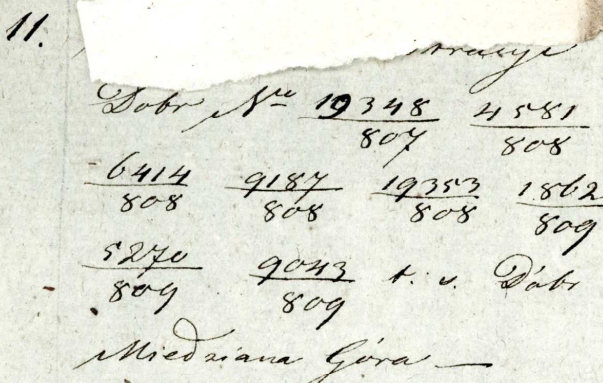 11.
Dobr Nro 19348/807 4581/808
6414/808 9187/808 19353/808 1862/809
5270/809 9043/809 t. s. Dóbr
Miedziana Góra —